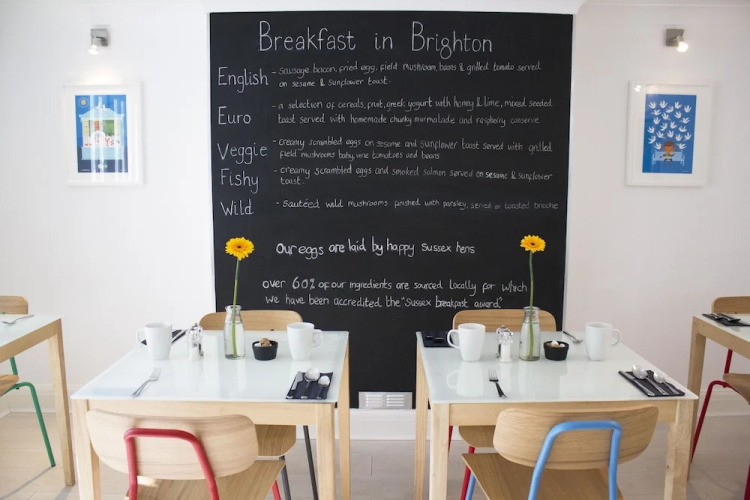 Breakfast in Brighton
English - sausage, bacon, fried egg, field mushroom, beans & grilled tomato served
on sesame & sunflower toast.
Euro - a selection of cereals, fruit, greek yogurt with honey & lime, mixed seeded
toast served with homemade chunky marmalade and raspberry conserve
Veggie - creamy scrambled eggs on sesame and sunflower toast served with grilled
field mushrooms baby vine tomatoes and beans
Fishy - creamy scrambled eggs and smoked salmon served on sesame & sunflower
toast.
Wild - sautéed wild mushrooms finished with parsley, served on toasted brioche
Our eggs are laid by happy Sussex hens
over 60% of our ingredients are sourced locally for which
we have been accredited the "Sussex breakfast award"